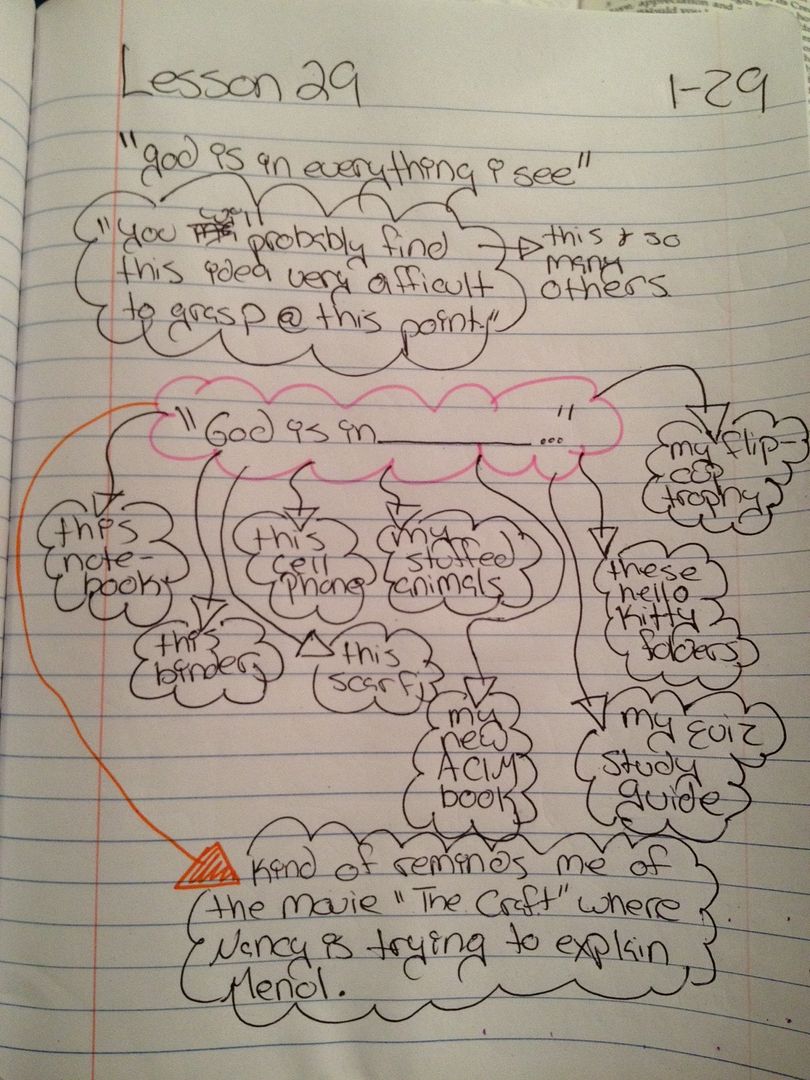 Lesson 29
1-29
"god is in everything i see"
"you will probably find
this idea very difficult
to grasp @ this point"
this & so
many
others
"God is in__________..."
my flip-
cup
trophy
this
note-
book
this
cell
phone
my
stuffed
animals
these
hello
kitty
folders
this
binder
this
scarf
my
new
ACIM
book
my quiz
study
guide
kind of reminds me of
the movie "The Craft" where
Nancy is trying to explain
Menol.